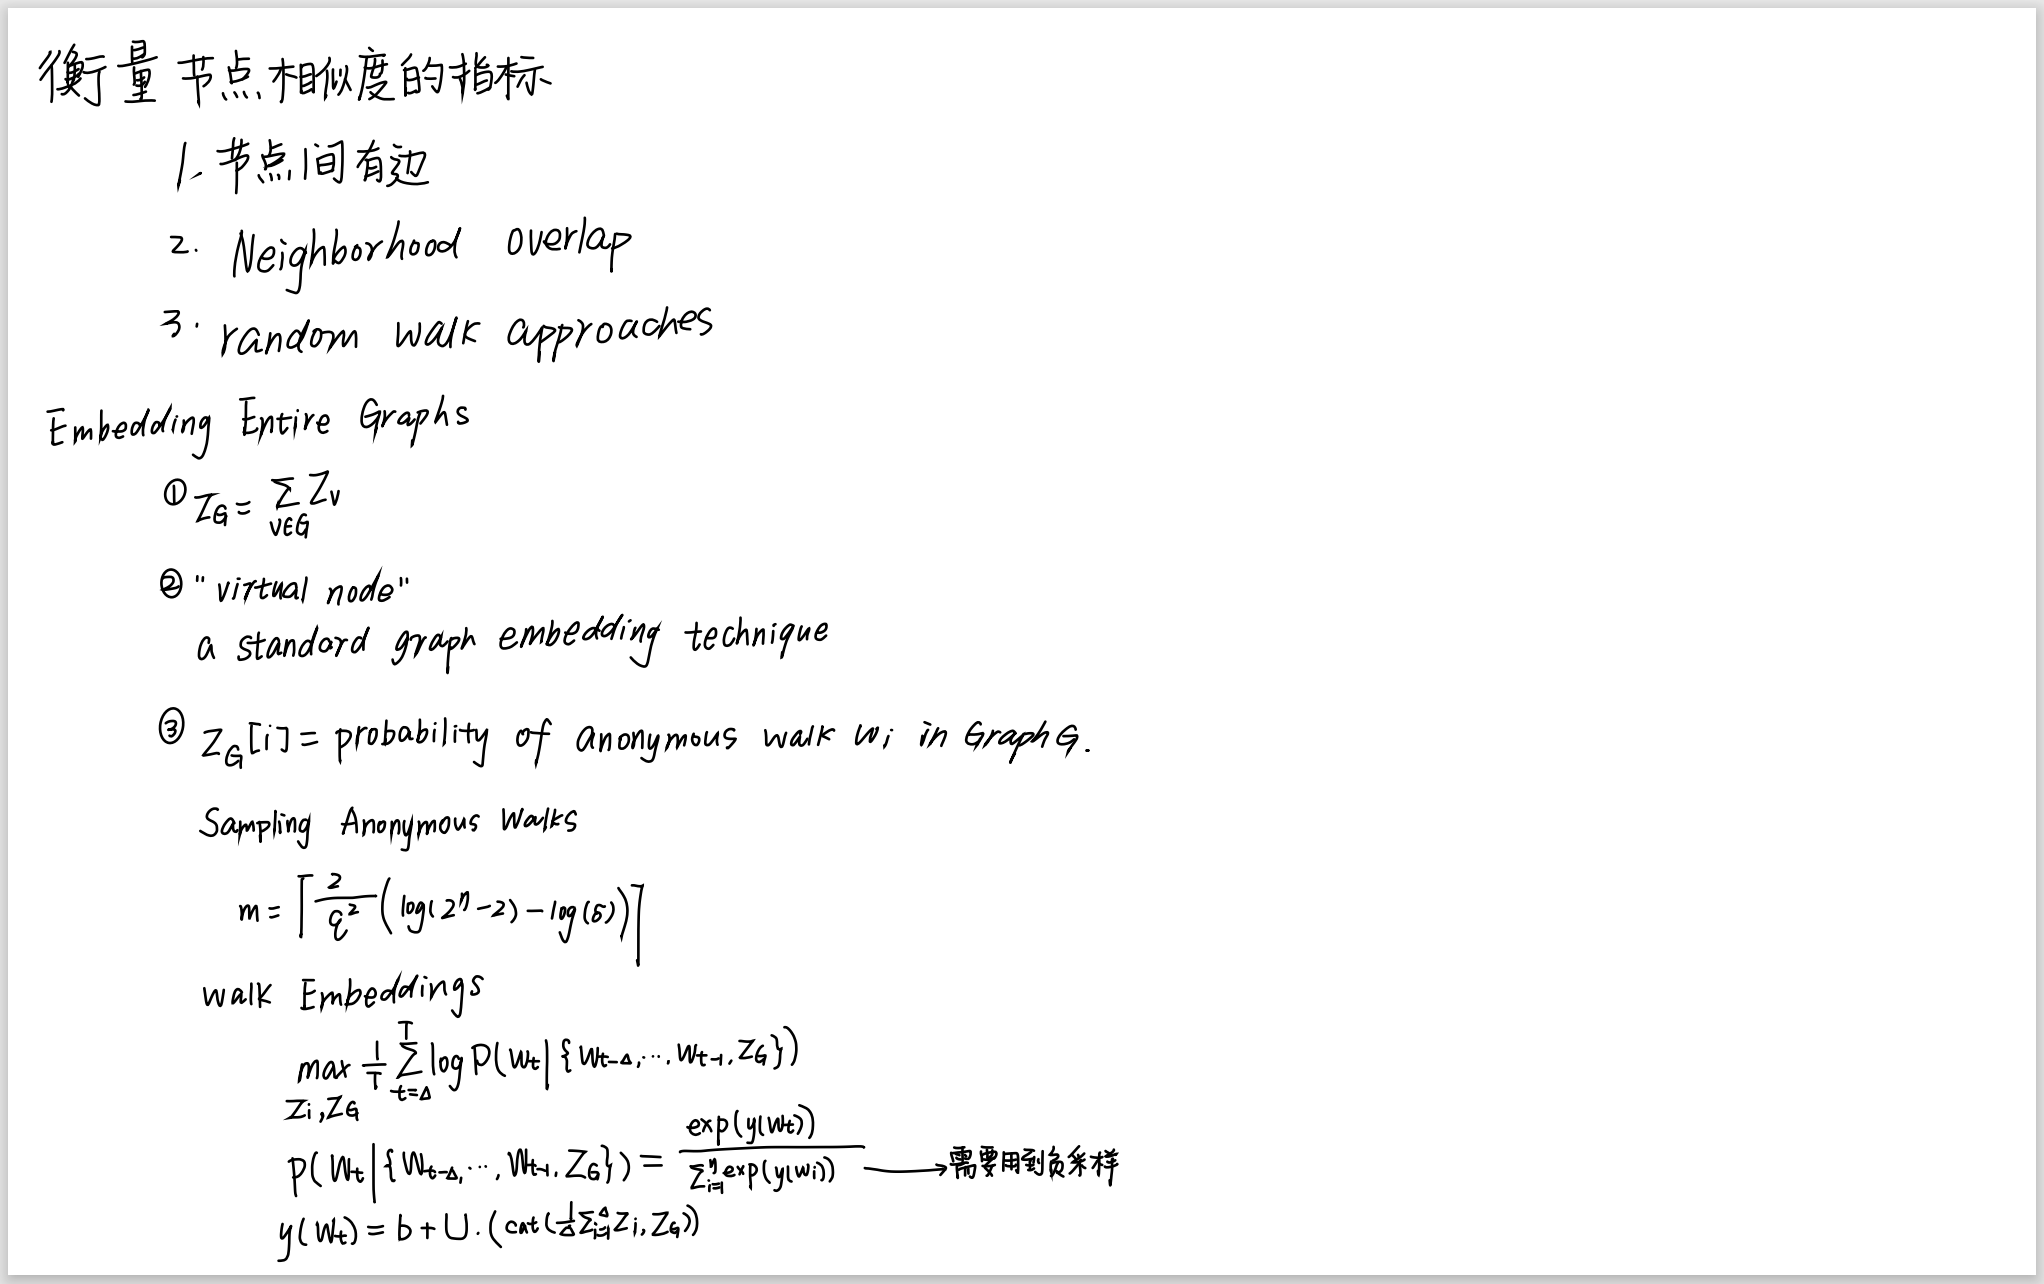 衡量节点相似度的指标
1. 节点间有边
2. Neighborhood overlap
3. random walk approaches
Embedding Entire Graphs
① Z_G = Σ_{v∈G} Z_v
② "virtual node"
a standard graph embedding technique
③ Z_G[i] = probability of anonymous walk w_i in Graph G.
Sampling Anonymous Walks
m = ⌈ 2/ε² (log(2^η - 2) - log(δ)) ⌉
walk Embeddings
max_{Z_i, Z_G} 1/T Σ_{t=Δ}^{T} log P(W_t | {W_{t-Δ}, ..., W_{t-1}, Z_G})
P(W_t | {W_{t-Δ}, ..., W_{t-1}, Z_G}) = exp(y(W_t)) / Σ_{i=1}^{η} exp(y(w_i)) → 需要用到负采样
y(W_t) = b + U · (cat(1/Δ Σ_{i=1}^{Δ} Z_i, Z_G))